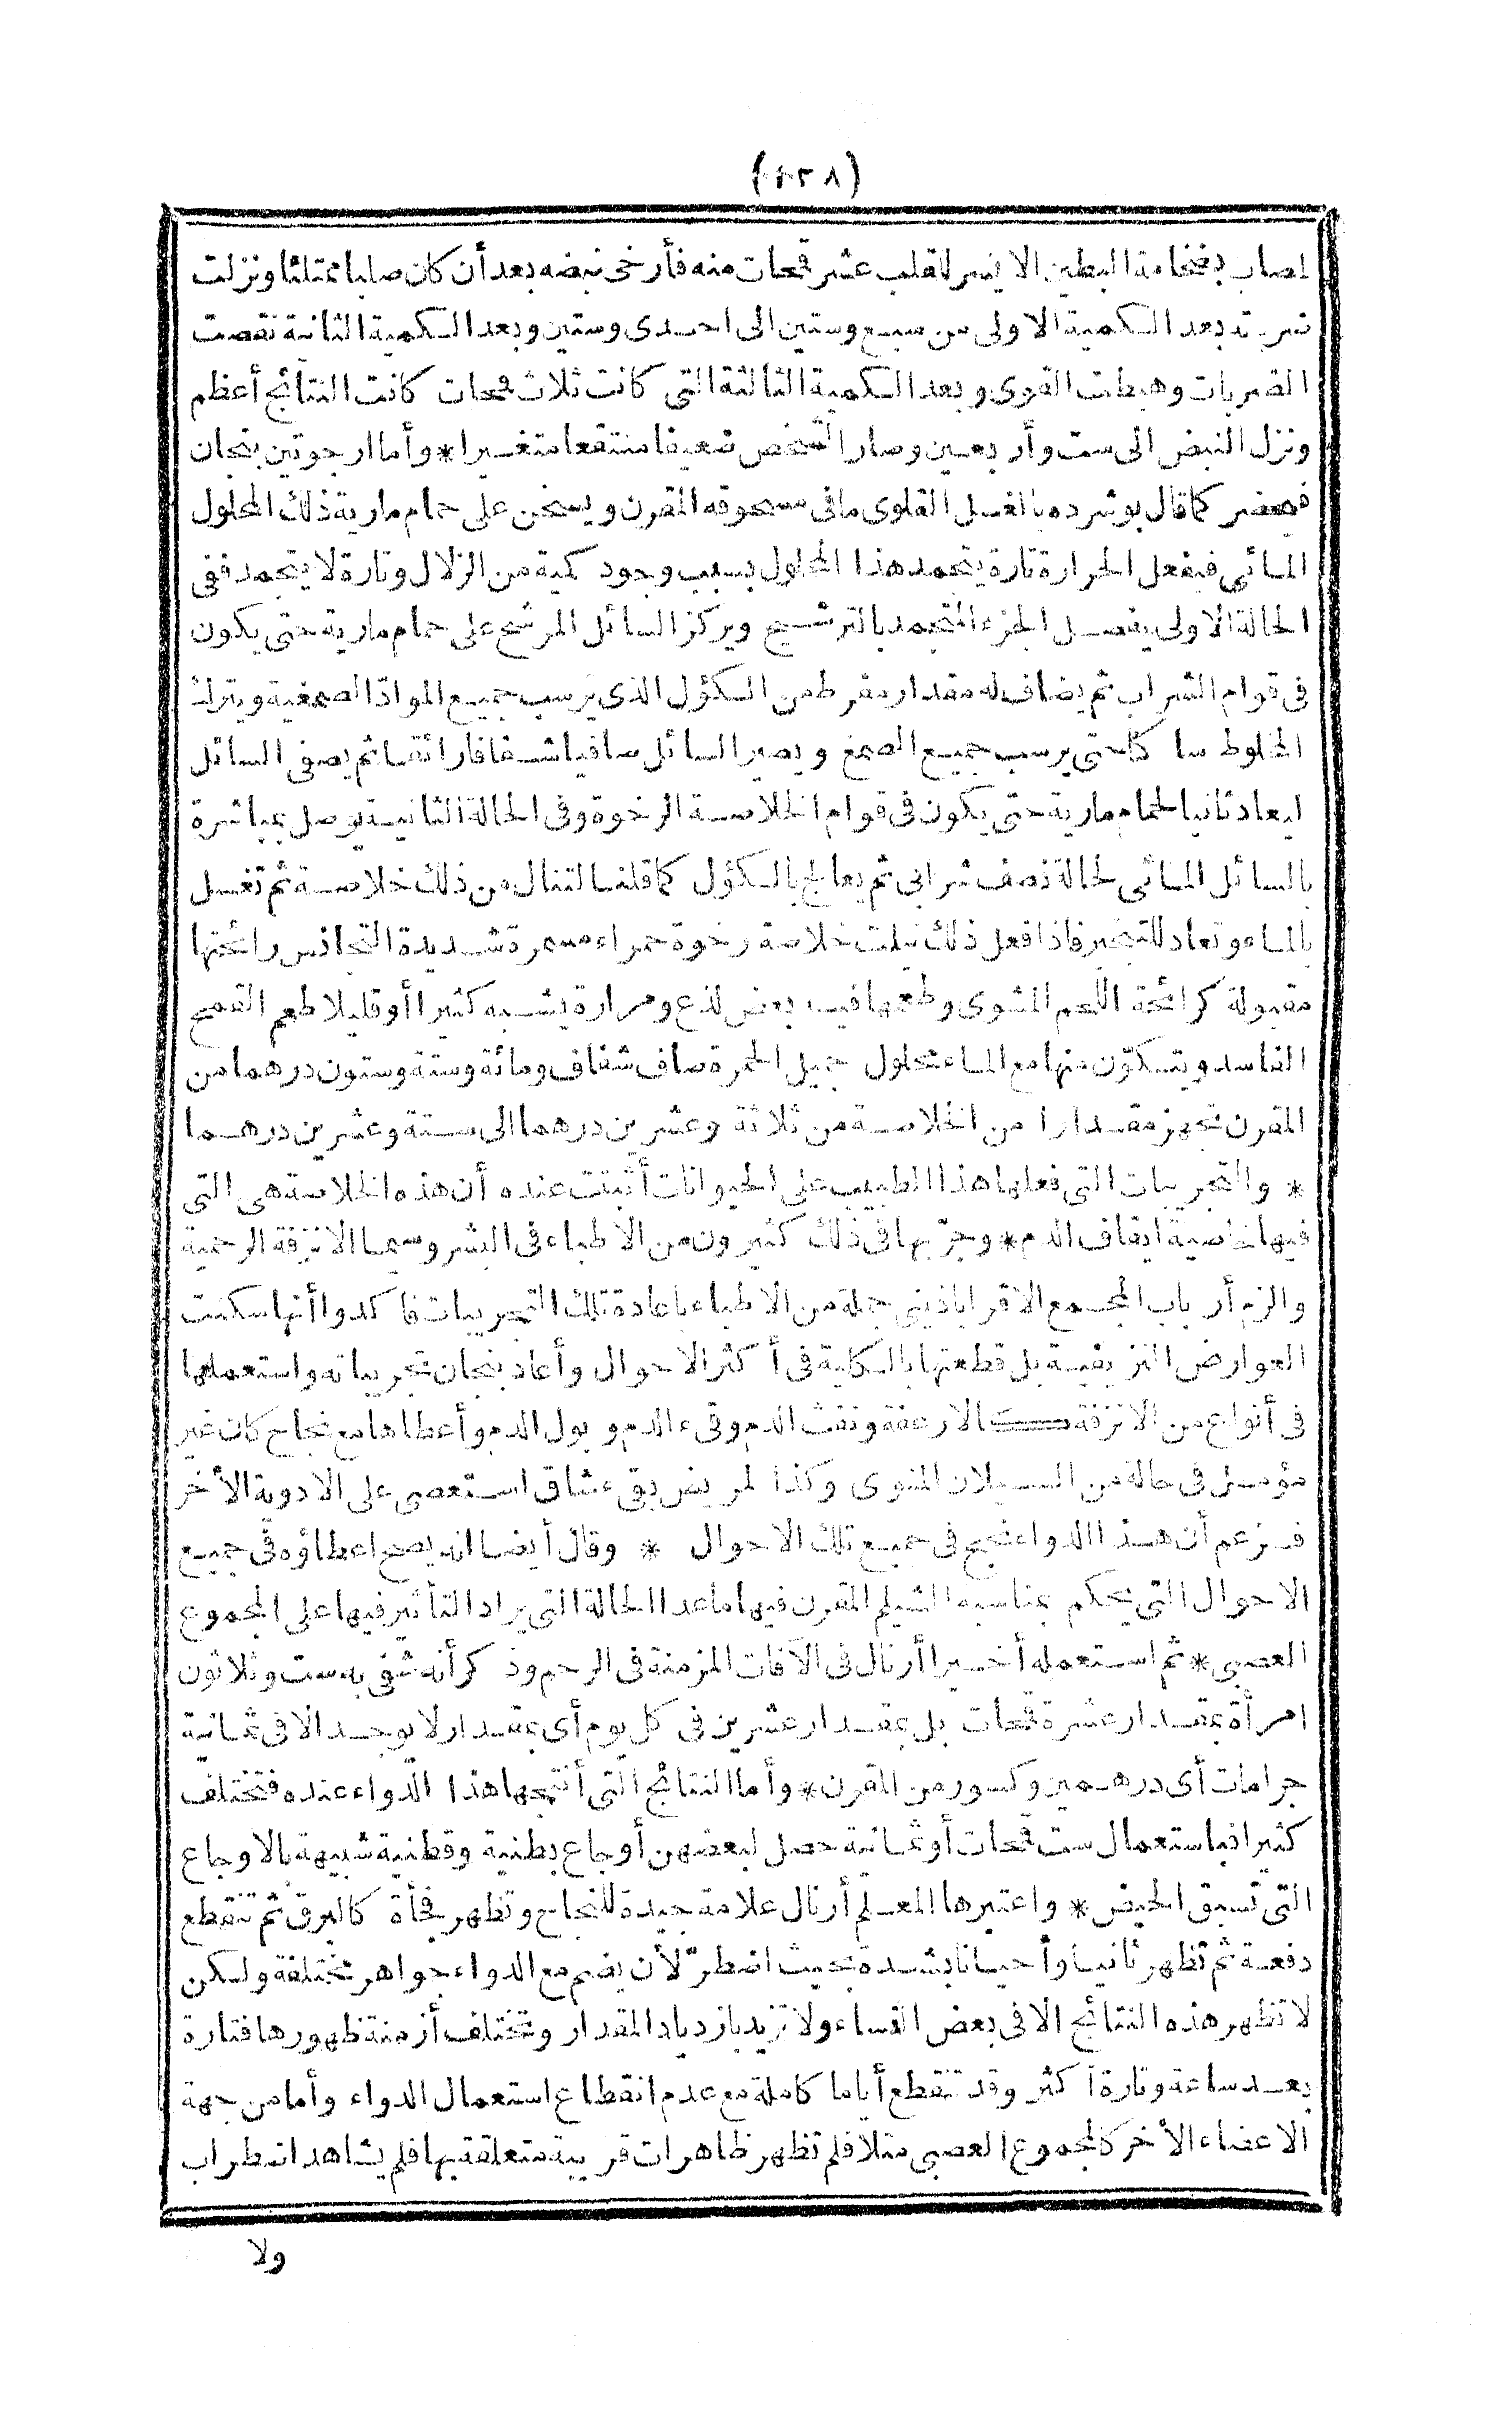 لمصاب بضخامة البطين الايسر للقلب عشر قمحات منه فأرخى نبضه بعد أن كان صلبا ممتلئا ونزلت
ضرباته بعد الكمية الاولى من سبع وستين الى احدى وستين وبعد الكمية الثانية نقصت
الضربات وهبطت القوى وبعد الكمية الثالثة التى كانت ثلاث قمحات كانت النتائج أعظم
ونزل النبض الى ست وأربعين وصار الشخص ضعيفا منتقعا متغيرا * وأما ارجوتين بنجان
فيحضر كما قال بوشرده بالغسل القلوى ما فى مسحوقه المقرن ويسخن على حمام مارية ذلك المحلول
المائى فبفعل الحرارة تارة يتجمد هذا المحلول بسبب وجود كمية من الزلال وتارة لا يتجمد ففى
الحالة الاولى يفصل الجزء المتجمد بالترشيح ويركز السائل المرشح على حمام مارية حتى يكون
فى قوام الشراب ثم يضاف له مقدار مفرط من الكؤل الذى يرسب جميع المواد الصمغية ويترك
المخلوط ساكنا حتى يرسب جميع الصمغ ويصير السائل صافيا شفافا رائقا ثم يصفى السائل
ليعاد ثانيا لحمام مارية حتى يكون فى قوام الخلاصة الرخوة وفى الحالة الثانية يوصل بمباشرة
بالسائل المائى لحالة نصف شرابى ثم يعالج بالكؤل كما قلنا لتنال من ذلك خلاصة ثم تغسل
بالماء وتعاد للتبخير فاذا فعل ذلك نيلت خلاصة رخوة حمراء مسمرة شديدة التجانس رائحتها
مقبولة كرائحة اللحم المشوى وطعمها فيه بعض لذع ومرارة يشبه كثيرا أو قليلا طعم القمح
الفاسد ويتكوّن منها مع الماء محلول جميل الحمرة صاف شفاف ومائة وستة وستون درهما من
المقرن تجهز مقدارا من الخلاصة من ثلاثة وعشرين درهما الى ستة وعشرين درهما
* والتجريبات التى فعلها هذا الطبيب على الحيوانات أثبتت عنده أن هذه الخلاصة هى التى
فيها خاصية ايقاف الدم * وجرّبها فى ذلك كثيرون من الاطباء فى البشر وسيما الانزفة الرحمية
والزم أرباب المجمع الاقراباذينى جملة من الاطباء باعادة تلك التجريبات فأكدوا أنها سكنت
العوارض النزيفية بل قطعتها بالكلية فى أكثر الاحوال وأعاد بنجان تجريباته واستعملها
فى أنواع من الانزفة كالارعفة ونفث الدم وقىء الدم وبول الدم وأعطاها مع نجاح كان غير
مؤمل فى حالة من السيلان المنوى وكذا لمريض بقى عشاق استعصى على الادوية الأخر
فزعم أن هذا الدواء نجح فى جميع تلك الاحوال * وقال أيضا انه يصح اعطاؤه فى جميع
الاحوال التى يحكم بمناسبة الشيلم المقرن فيها ما عدا الحالة التى يراد التأثير فيها على المجموع
العصبى * ثم استعمله أخيرا أرنال فى الآفات المزمنة فى الرحم وذكر أنه شفى به ست وثلاثون
امرأة بمقدار عشرة قمحات بل بمقدار عشرين فى كل يوم أى بمقدار لا يوجد الا فى ثمانية
جرامات أى درهمين وكسور من المقرن * وأما النتائج التى أنتجها هذا الدواء عنده فتختلف
كثيرا فباستعمال ست قمحات أو ثمانية حصل لبعضهن أوجاع بطنية وقطنية شبيهة بالاوجاع
التى تسبق الحيض * واعتبرها المعلم أرنال علامة جيدة للنجاح وتظهر فجأة كالبرق ثم تنقطع
دفعة ثم تظهر ثانيا وأحيانا بشدة بحيث اضطرّ لأن يضم مع الدواء جواهر مختلفة ولكن
لا تظهر هذه النتائج الا فى بعض النساء ولا تزيد بازدياد المقدار وتختلف أزمنة ظهورها فتارة
بعد ساعة وتارة أكثر وقد تنقطع أياما كاملة مع عدم انقطاع استعمال الدواء وأما من جهة
الاعضاء الأخر كالمجموع العصبى مثلا فلم تظهر ظاهرات قريبة متعلقة بها فلم يشاهد اضطراب
ولا